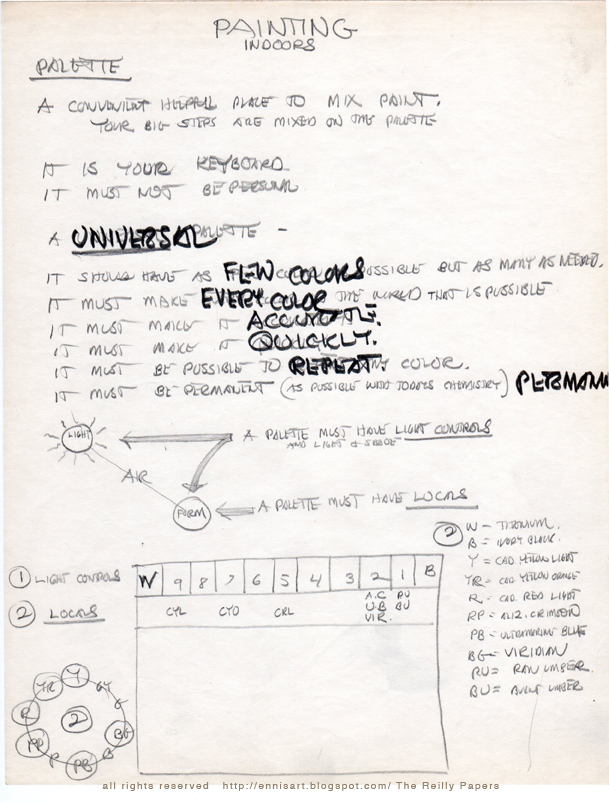 PAINTING
INDOORS
PALETTE
A CONVENIENT HELPFUL PLACE TO MIX PAINT.
YOUR BIG STEPS ARE MIXED ON THE PALETTE
IT IS YOUR KEYBOARD
IT MUST NOT BE PERSONAL
A UNIVERSAL PALETTE -
IT SHOULD HAVE AS FEW COLORS POSSIBLE BUT AS MANY AS NEEDED.
IT MUST MAKE EVERY COLOR THE WORLD THAT IS POSSIBLE.
IT MUST MAKE IT
IT MUST MAKE IT QUICKLY.
IT MUST BE POSSIBLE TO REPEAT ANY COLOR.
IT MUST BE PERMANENT (AS POSSIBLE WITH TODAYS CHEMISTRY)
LIGHT
A PALETTE MUST HAVE LIGHT CONTROLS
AND LIGHT & SHADE
AIR
FORM
A PALETTE MUST HAVE LOCALS
2 W - TITANIUM.
B = IVORY BLACK.
Y = CAD YELLOW LIGHT
YR = CAD YELLOW ORANGE
R = CAD. RED LIGHT
RP = ALIZ. CRIMSON
PB = ULTRAMARINE BLUE
BG = VIRIDIAN
RU = RAW UMBER.
BU = BURNT UMBER
1 LIGHT CONTROLS
W 9 8 7 6 5 4 3 2 1 B
2 LOCALS
CYL CYO CRL A.C RU
U.B BU
VIR.
Y
YR GY
G
R 2 BG
RP B
P PB
all rights reserved http://ennisart.blogspot.com/ The Reilly Papers